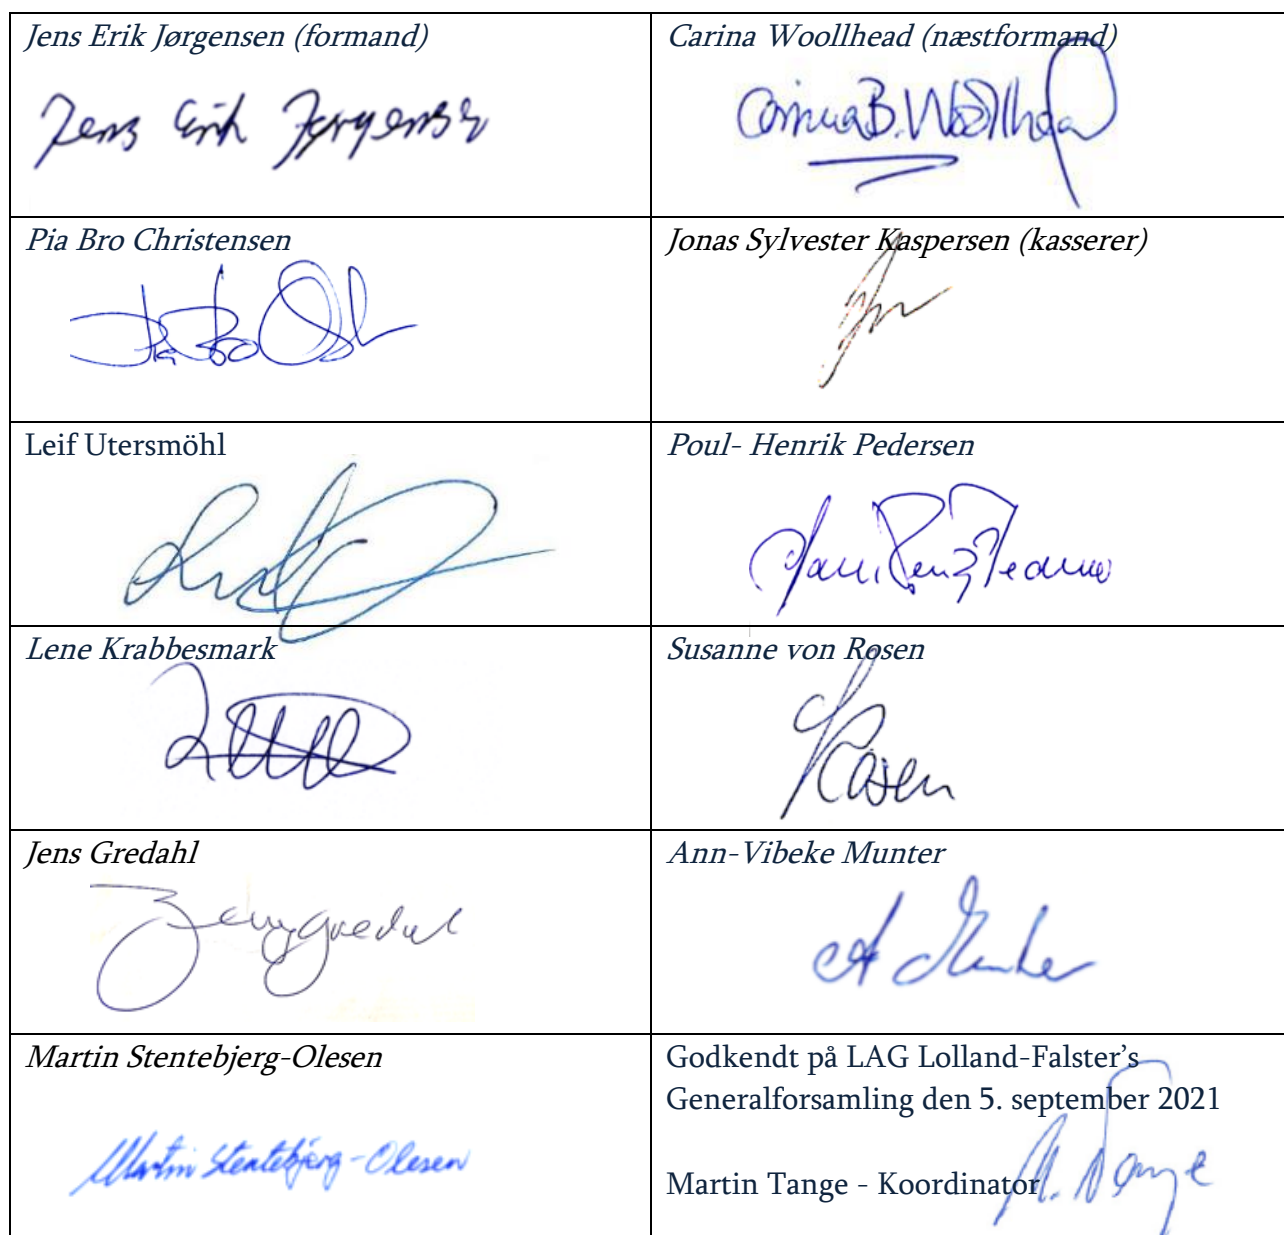 Jens Erik Jørgensen (formand)
Jens Erik Jørgensen
Carina Woollhead (næstformand)
Carina B. Woollhead
Pia Bro Christensen
Pia Bro
Jonas Sylvester Kaspersen (kasserer)
Leif Utersmöhl
Poul- Henrik Pedersen
Lene Krabbesmark
Susanne von Rosen
Rosen
Jens Gredahl
Jens Gredahl
Ann-Vibeke Munter
A Munter
Martin Stentebjerg-Olesen
Martin Stentebjerg-Olesen
Godkendt på LAG Lolland-Falster’s
Generalforsamling den 5. september 2021
Martin Tange - Koordinator
M. Tange